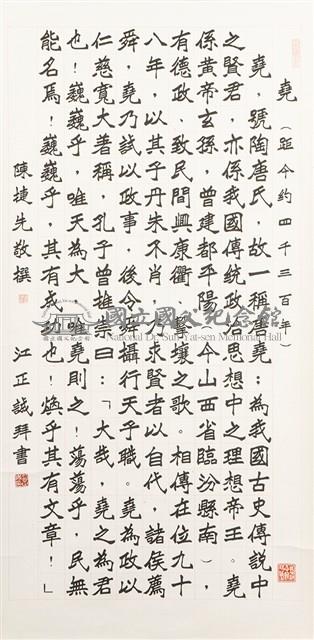 堯（距今約四千三百年）
堯，號陶唐氏，故一稱唐堯；為我國古史傳說中
之賢君，亦係我國傳統政治思想中之理想帝王。堯
係黃帝玄孫，曾建都平陽（今山西省臨汾縣南），
有德政，致民間興康衢、擊壤之歌。相傳在位九十
八年，以其子丹朱不肖，乃求賢者以自代，諸侯薦
舜，堯乃試以政事，後令舜攝行天子職。堯為政以
仁慈寬大著稱，孔子曾推崇曰：「大哉 堯之為君
也！巍巍乎，唯天為大，唯堯則之！蕩蕩乎，民無
能名焉！巍巍乎，其有成功也！煥乎其有文章！」
陳捷先敬撰 江正誠拜書
國立國父紀念館
National Dr. Sun Yat-sen Memorial Hall